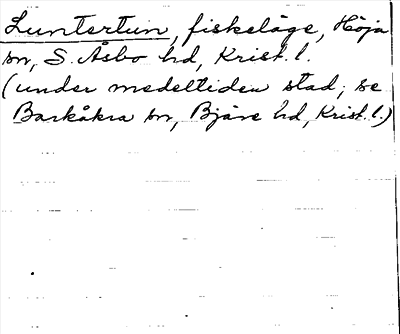 Luntertun, fiskeläge, Höja
sn, S. Åsbo hd, Krist. l.
(under medeltiden stad; se
Barkåkra sn, Bjäre hd, Krist. l.)